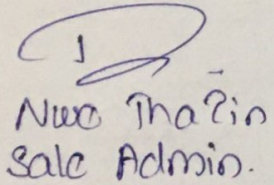 Nwe Thazin
Sale Admin.